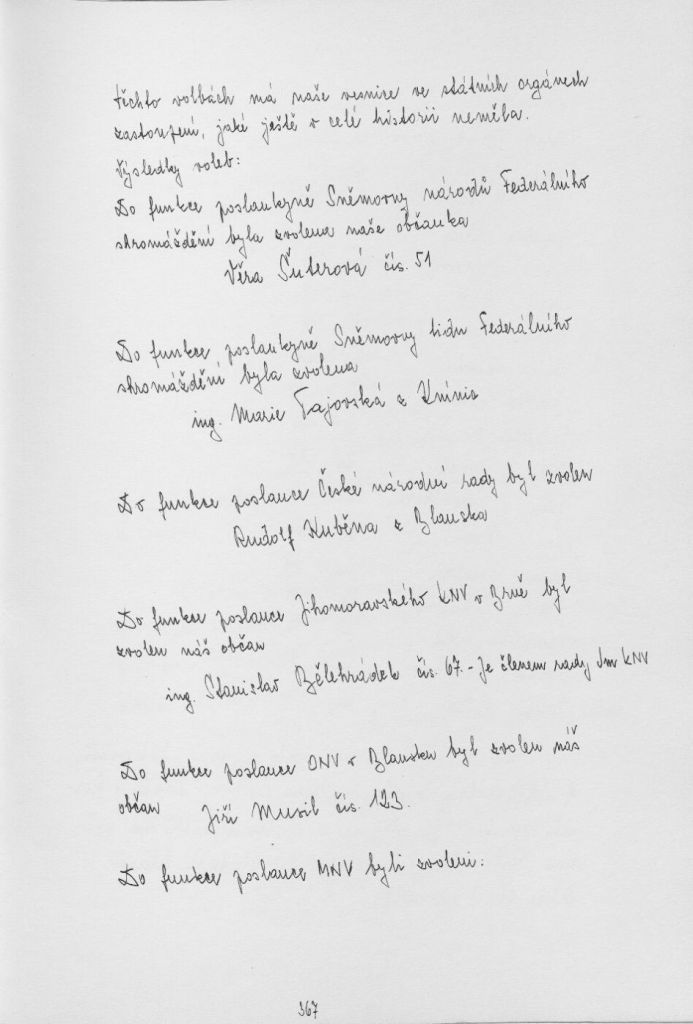 těchto volbách má naše vesnice ve státních orgánech
zastoupení, jaké ještě v celé historii neměla.
Výsledky voleb:
Do funkce poslankyně Sněmovny národů Federálního
shromáždění byla zvolena naše občanka
Věra Šuterová čís. 51
Do funkce poslankyně Sněmovny lidu Federálního
shromáždění byla zvolena
ing. Marie Tajovská z Knínic
Do funkce poslance České národní rady byl zvolen
Rudolf Kuběna z Blanska
Do funkce poslance Jihomoravského KNV v Brně byl
zvolen náš občan
ing. Stanislav Bělehrádek čís. 67. - Je členem rady Jm KNV
Do funkce poslance ONV v Blansku byl zvolen náš
občan Jiří Musil čís. 123.
Do funkce poslance MNV byli zvoleni:
367